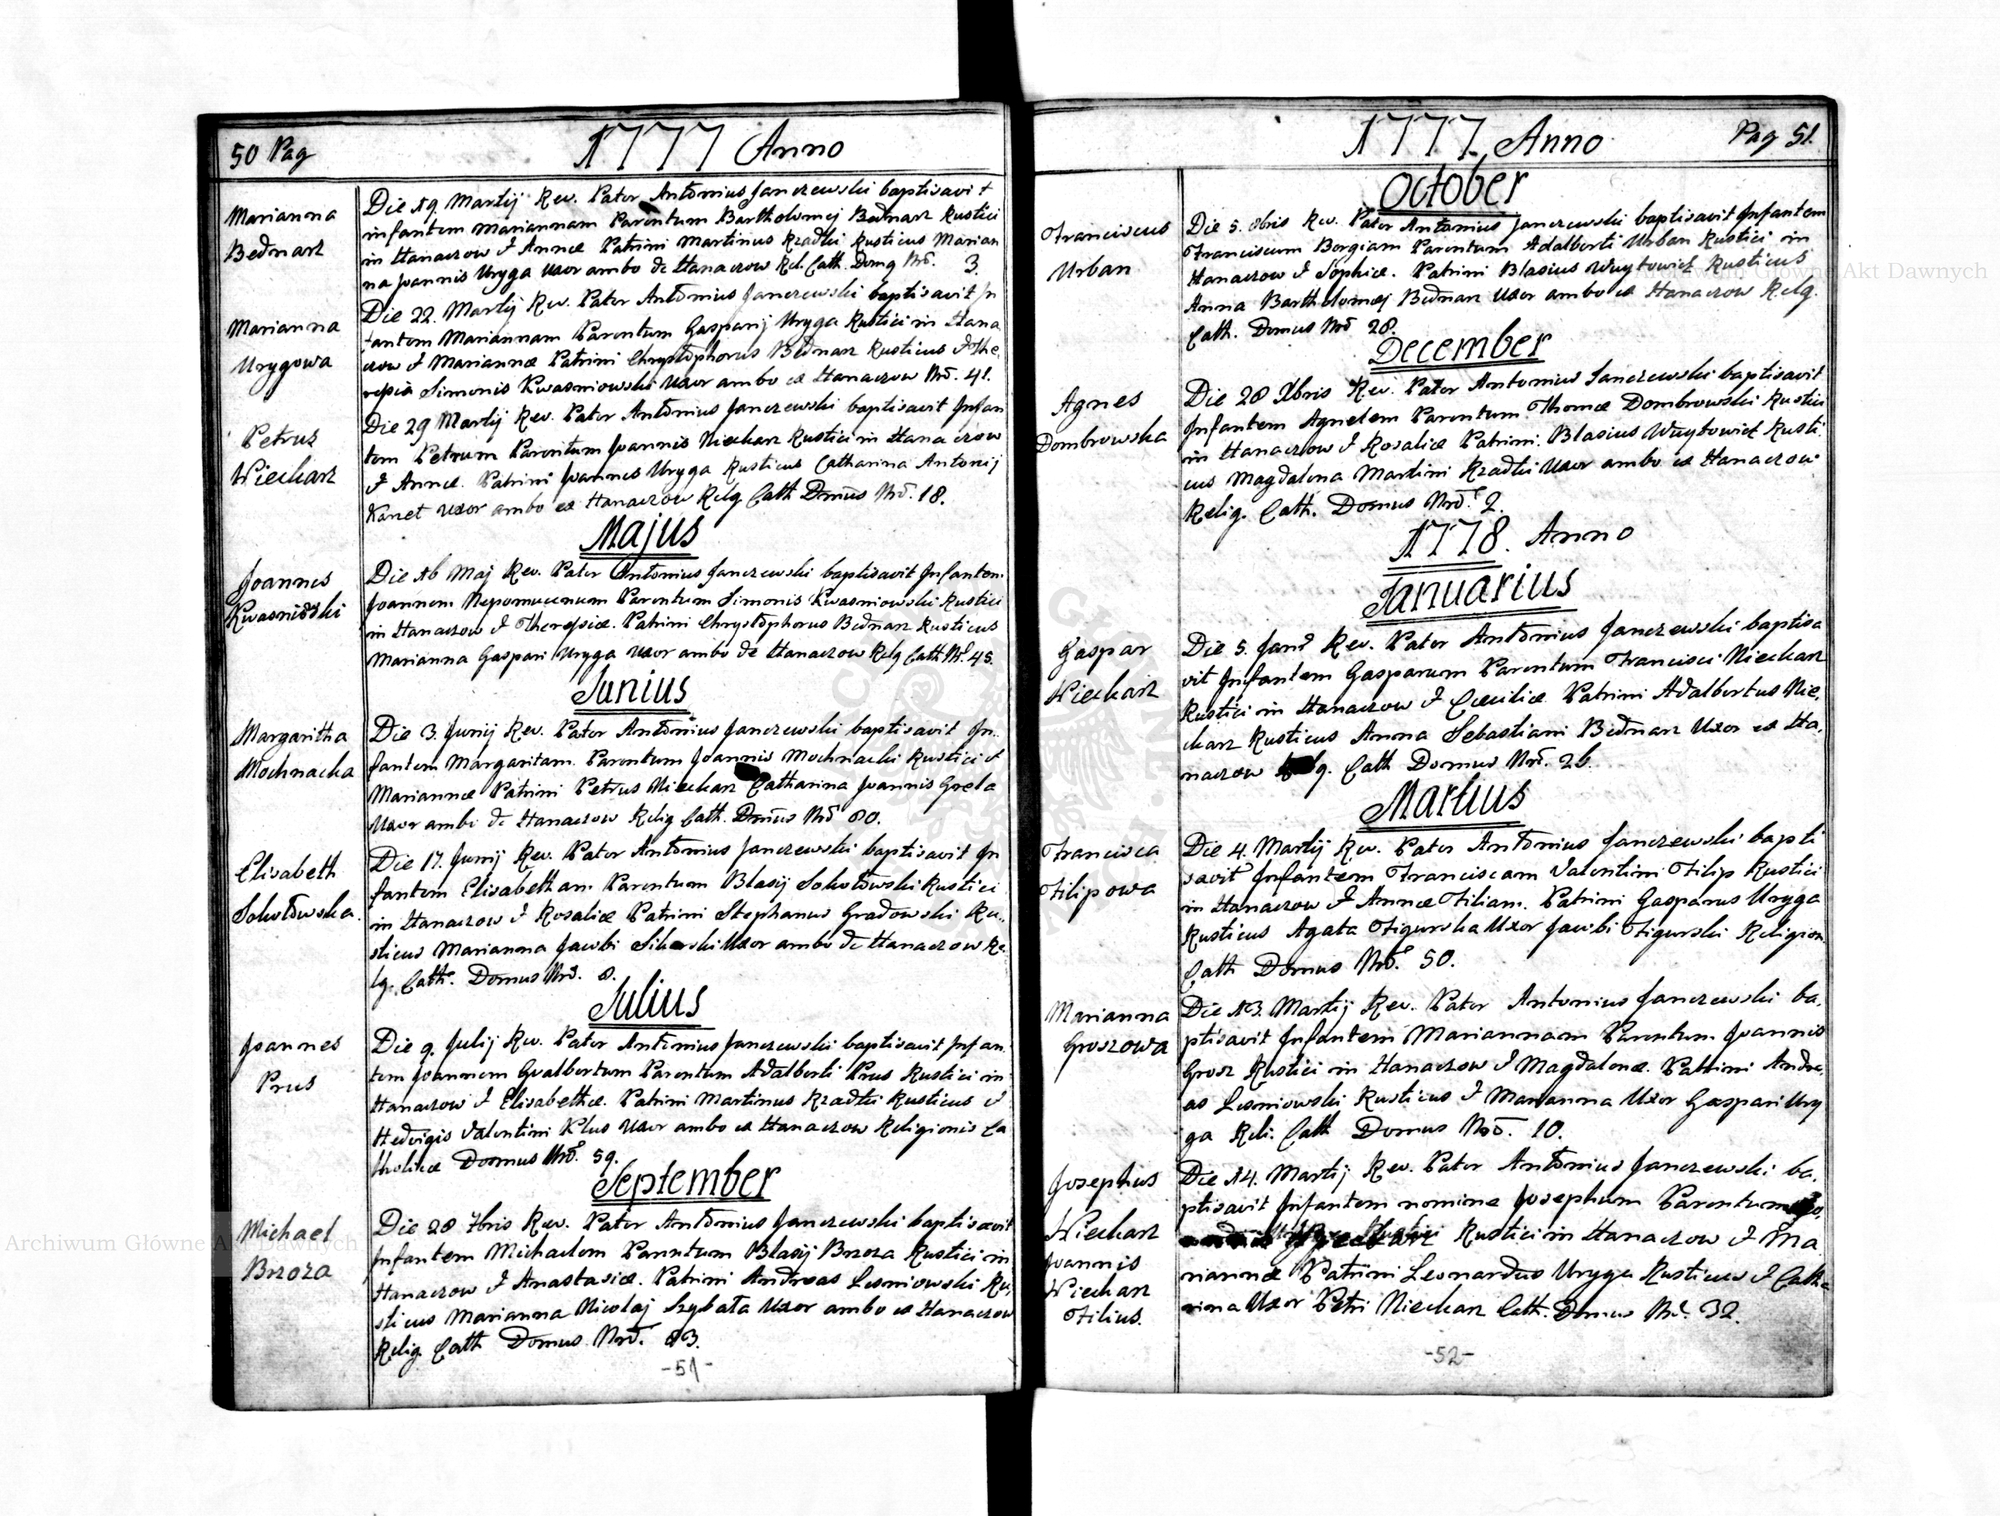 50 Pag
1777 Anno
Marianna
Bednarz
Die 19 Martij Rev. Pater Antonius Janczewski baptisavit
infantem Mariannam Parentum Bartholomej Bednarz Rustici
in Hanaczow & Annæ Patrini Martinus Rzadki Rusticus Marian
na Joannis Uryga Uxor ambo de Hanaczow Rel. Cath. Domg Nrō. 3.
Marianna
Urygowa
Die 22. Martij Rev. Pater Antonius Janczewski baptisavit In
fantem Mariannam Parentum Gasparij Uryga Rustici in Hana
czow & Mariannæ Patrini Chrystophorus Bednarz Rusticus & The
resia Simonis Kwasniowski Uxor ambo ex Hanaczow Nrō. 41.
Petrus
Niechaz
Die 29 Martij Rev. Pater Antonius Janczewski baptisavit Infan
tem Petrum Parentum Joannis Niechaz Rustici in Hanaczow
& Annæ. Patrini Joannes Uryga Rusticus Catharina Antonij
Kanet Uxor ambo ex Hanaczow Relg Cath Domūs Nrō. 18.
Majus
Joannes
Kwasniōski
Die 16 Maj Rev. Pater Antonius Janczewski baptisavit Infantem
Joannem Nepomucenum Parentum Simonis Kwasniowski Rustici
in Hanaczow & Theresiæ. Patrini Chrystophorus Bednarz Rusticus
Marianna Gaspari Uryga Uxor ambo de Hanaczow Relg Cath Nō. 45.
Junius
Margaritha
Mochnacka
Die 3. Junij Rev. Pater Antonius Janczewski baptisavit In,
fantem Margaritam. Parentum Joannis Mochnacki Rustici &
Mariannæ Patrini Petrus Niechaz Catharina Joannis Grela
Uxor ambi de Hanaczow Relig Cath. Domūs Nrō 80.
Elisabeth
Sokołowska.
Die 17. Junij Rev. Pater Antonius Janczewski baptisavit In
fantem Elisabetham Parentum Blasij Sokołowski Rustici
in Hanaczow & Rosaliæ Patrini Stephanus Gradowski Ru,
sticus Marianna Jacobi Sikorski Uxor ambo de Hanaczow Re
lg. Cath. Domus Nrō. 8.
Julius
Joannes
Prus
Die 9. Julij Rev. Pater Antonius Janczewski baptisavit Infan
tem Joannem Gvalbertum Parentum Adalberti Prus Rustici in
Hanaczow & Elisabethæ. Patrini Martinus Rzadki Rusticus &
Hedvigis Valentini Klus Uxor ambo ex Hanaczow Religionis Ca
tholicæ Domus Nrō. 59.
September
Michael
Brzoza
Die 28 7bris Rev. Pater Antonius Janczewski baptisavit
Infantem Michaelem Parentum Blasij Brzoza Rustici in
Hanaczow & Anastasiæ. Patrini Andreas Lesniowski Ru,
sticus Marianna Nicolaj Szybała Uxor ambo ex Hanaczow
Relig. Cath Domus Nrō. 83.
-51-
1777. Anno
Pag 51.
October
Franciscus
Urban
Die 5. 8bris Rev. Pater Antonius Janczewski baptisavit Infantem
Franciscum Borgiam Parentum Adalberti Urban Rustici in
Hanaczow & Sophiæ. Patrini Blasius Wuytowicz Rusticus
Anna Bartholomej Bednarz Uxor ambo ex Hanaczow Relg.
Cath. Domus Nrō 28.
December
Agnes
Dombrowska
Die 28 Xbris Rev. Pater Antonius Janczewski baptisavit
Infantem Agnetem Parentum. Thomæ Dombrowski Rustici
in Hanaczow & Rosaliæ Patrini. Blasius Wuytowicz Rusti
cus Magdalena Martini Rzadki Uxor ambo ex Hanaczow
Relig. Cath. Domus Nrō. 2.
1778. Anno
Januarius
Gaspar
Niechaz
Die 5. Janō Rev. Pater Antonius Janczewski baptisa
vit Infantem Gasparum Parentum Francisci Niechaz
Rustici in Hanaczow & Cæciliæ Patrini Adalbertus Nie,
charz Rusticus Anna Sebastiani Bednarz Uxor ex Ha,
naczow Cath Domus Nrō. 26.
Martius
Francisca
Filipowa
Die 4. Martij Rev. Pater Antonius Janczewski bapti
savit Infantem Franciscam Valentini Filip Rustici
in Hanaczow & Annæ Filiam. Patrini Gasparus Uryga
Rusticus Agata Figurska Uxor Jacobi Figurski Religion
Cath Domus Nrō. 50.
Marianna
Groszowa
Die 13. Martij Rev. Pater Antonius Janczewski ba,
ptisavit Infantem Mariannam Parentum Joannis
Grosz Rustici in Hanaczow & Magdalenæ. Patrini Andre,
as Lesniowski Rusticus & Marianna Uxor Gaspari Ury
ga Reli. Cath Domus Nrō. 10.
Josephus
Niechaz
Joannis
Niechaz
Filius.
Die 14. Martij Rev. Pater Antonius Janczewski ba,
ptisavit Infantem nomine Josephum Parentum
Rustici in Hanaczow & Ma
riannæ Patrini Leonardus Uryga Rusticus & Cath
rina Uxor Petri Niechaz Cath. Domus Nō. 32.
-52-
Archiwum Główne Akt Dawnych
Archiwum Główne Akt Dawnych